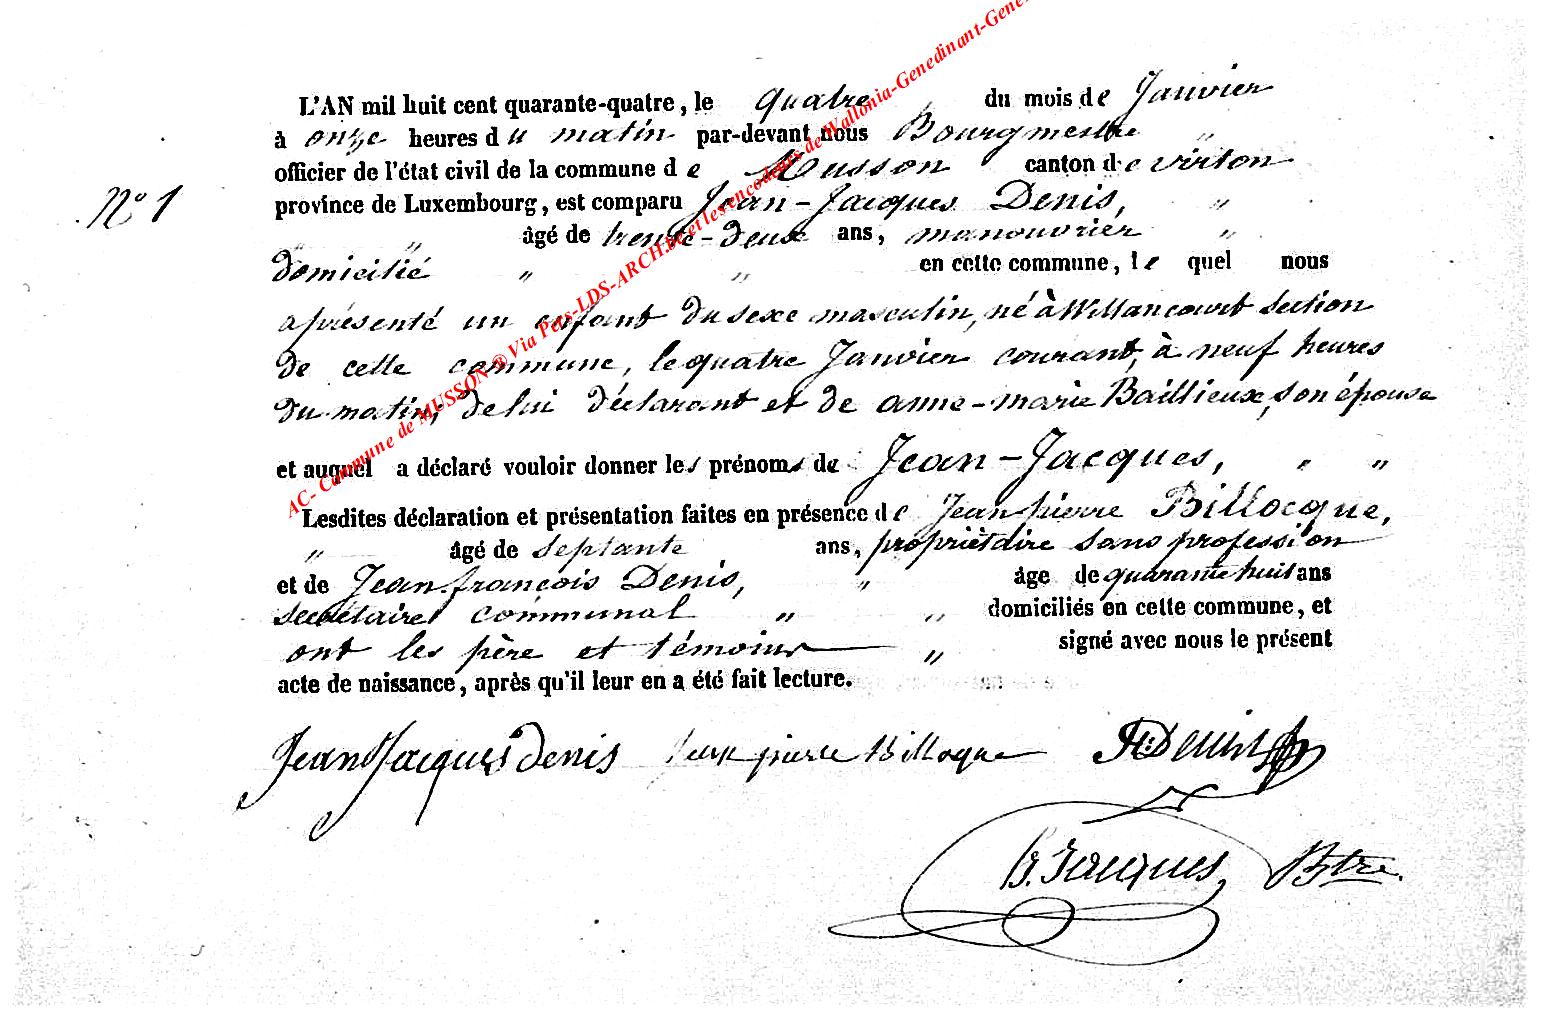 L'AN mil huit cent quarante-quatre, le quatre du mois de Janvier
à onze heures du matin par-devant nous Bourgmestre "
officier de l'état civil de la commune de Musson canton de virton
N° 1
province de Luxembourg, est comparu Jean-Jacques Denis, "
" " âgé de trente-deux ans, manouvrier "
domicilié " " en cette commune, le quel nous
a présenté un enfant du sexe masculin, né à Willancourt section
de cette commune, le quatre Janvier courant, à neuf heures
du matin, de lui déclarant et de anne-marie Baillieux, son épouse
et auquel a déclaré vouloir donner les prénoms de Jean-Jacques, " "
Lesdites déclaration et présentation faites en présence de Jean pierre Billocque,
" âgé de septante ans, propriètaire sans profession
et de Jean françois Denis, " âge de quarante huit ans
secrétaire communal " " domiciliés en cette commune, et
ont les père et témoins " signé avec nous le présent
acte de naissance, après qu'il leur en a été fait lecture.
Jean Jacques denis Jean pierre Billoque Denis
Jacques Btre.
AC- Commune de MUSSON ® Via Pers-LDS-ARCH.be et les encodeurs de Wallonia-Genedinant-Gene